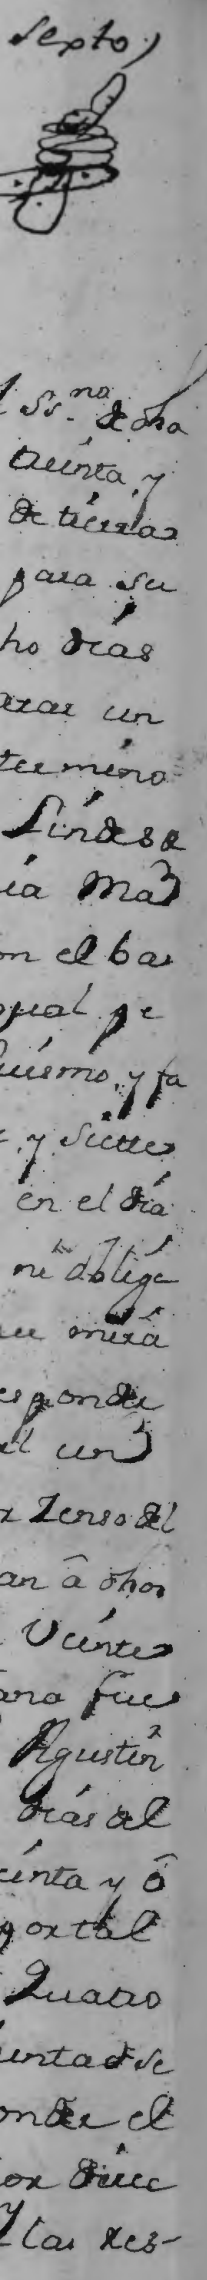 Sexto,
l Ss.no de ona
treinta, y
de tierras
para su
ho dias
arar un
termino
Lindesa
ia Ma
on el bar
qual se
uismo, y fa
e, y Siette
en el dia
mte oblige
ue mira
esponde
el un
r Zenso del
an â dhos
Veinte
ana fue
Agustin
dias al
einta y ô
portal
Quatro
unta de Se
onde el
or diec
y las res-